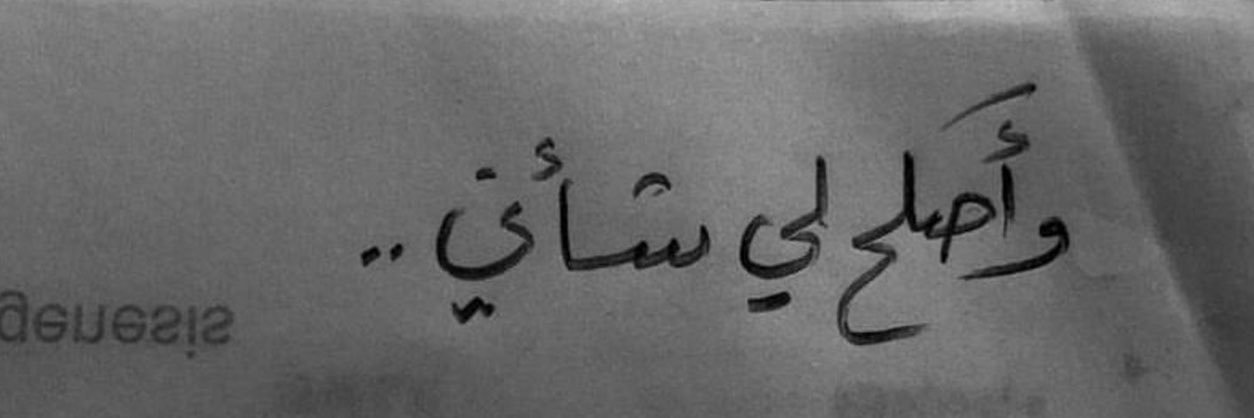 وأَصلح لي شأني ..
genesis